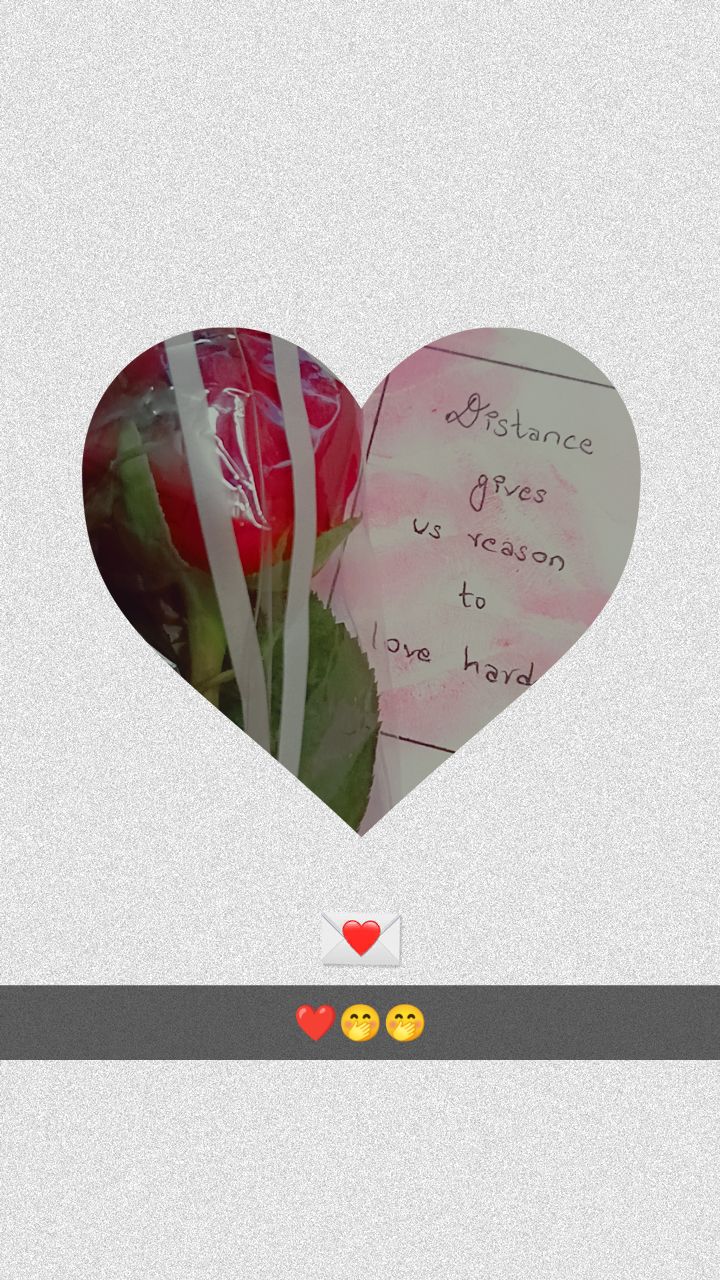 Distance
gives
us reason
to
love hard